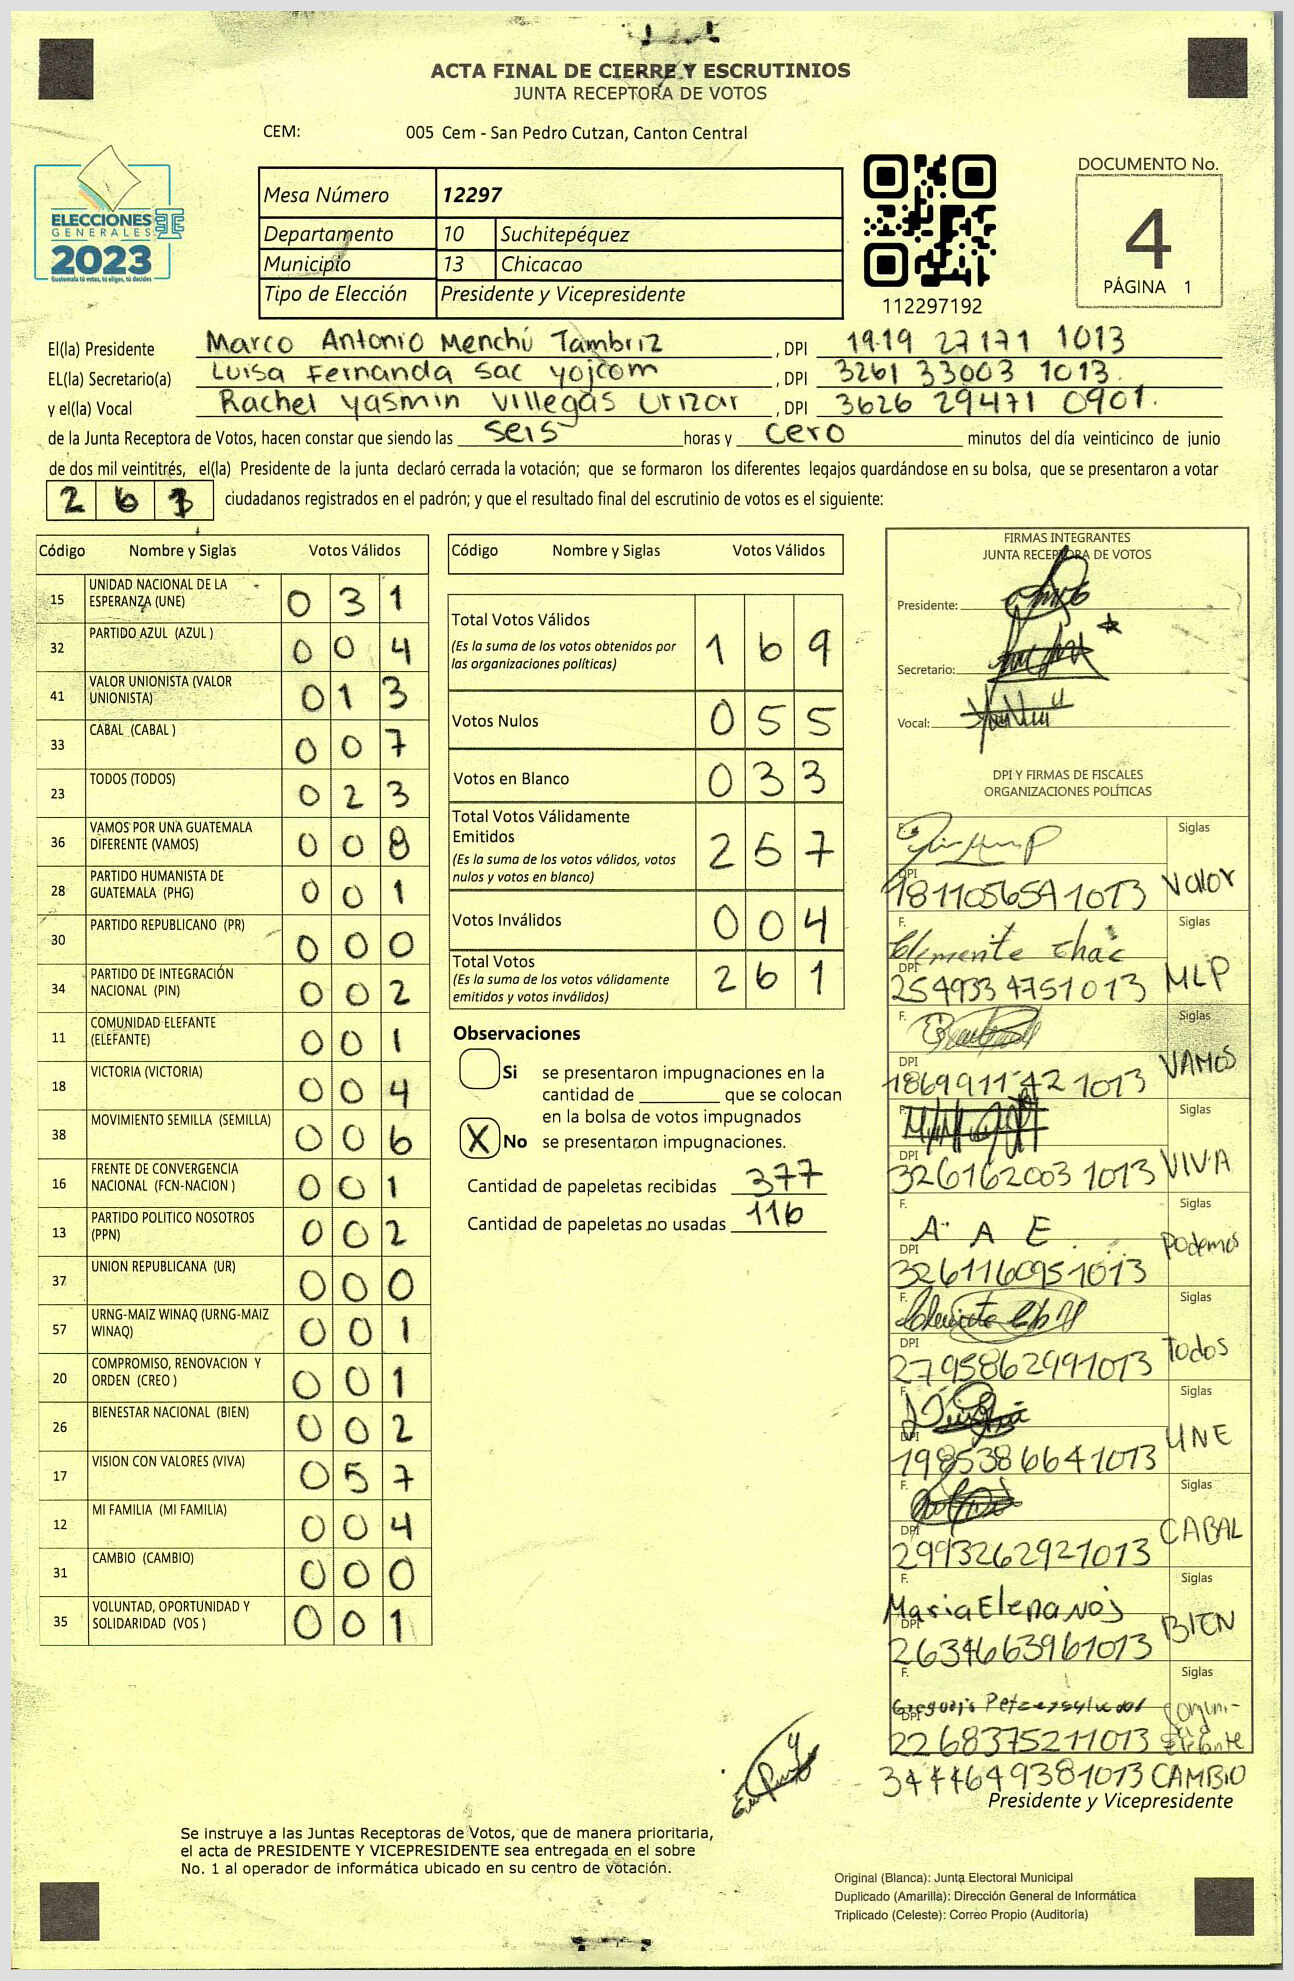 ACTA FINAL DE CIERRE Y ESCRUTINIOS
JUNTA RECEPTORA DE VOTOS
CEM: 005 Cem - San Pedro Cutzan, Canton Central
ELECCIONES
GENERALES
2023
Guatemala tú votas, tú eliges, tú decides
Mesa Número 12297
Departamento 10 Suchitepéquez
Municipio 13 Chicacao
Tipo de Elección Presidente y Vicepresidente
112297192
DOCUMENTO No.
4
PÁGINA 1
El(la) Presidente Marco Antonio Menchú Tambriz , DPI 1919 27171 1013
EL(la) Secretario(a) Luisa Fernanda Sac Yojcom , DPI 3261 33003 1013.
y el(la) Vocal Rachel Yasmin Villegas Urizar , DPI 3626 29471 0901.
de la Junta Receptora de Votos, hacen constar que siendo las seis horas y cero minutos del día veinticinco de junio
de dos mil veintitrés, el(la) Presidente de la junta declaró cerrada la votación; que se formaron los diferentes legajos guardándose en su bolsa, que se presentaron a votar
2 6 1 ciudadanos registrados en el padrón; y que el resultado final del escrutinio de votos es el siguiente:
Código Nombre y Siglas Votos Válidos
15 UNIDAD NACIONAL DE LA ESPERANZA (UNE) 0 3 1
32 PARTIDO AZUL (AZUL ) 0 0 4
41 VALOR UNIONISTA (VALOR UNIONISTA) 0 1 3
33 CABAL (CABAL ) 0 0 7
23 TODOS (TODOS) 0 2 3
36 VAMOS POR UNA GUATEMALA DIFERENTE (VAMOS) 0 0 8
28 PARTIDO HUMANISTA DE GUATEMALA (PHG) 0 0 1
30 PARTIDO REPUBLICANO (PR) 0 0 0
34 PARTIDO DE INTEGRACIÓN NACIONAL (PIN) 0 0 2
11 COMUNIDAD ELEFANTE (ELEFANTE) 0 0 1
18 VICTORIA (VICTORIA) 0 0 4
38 MOVIMIENTO SEMILLA (SEMILLA) 0 0 6
16 FRENTE DE CONVERGENCIA NACIONAL (FCN-NACION ) 0 0 1
13 PARTIDO POLITICO NOSOTROS (PPN) 0 0 2
37 UNION REPUBLICANA (UR) 0 0 0
57 URNG-MAIZ WINAQ (URNG-MAIZ WINAQ) 0 0 1
20 COMPROMISO, RENOVACION Y ORDEN (CREO ) 0 0 1
26 BIENESTAR NACIONAL (BIEN) 0 0 2
17 VISION CON VALORES (VIVA) 0 5 7
12 MI FAMILIA (MI FAMILIA) 0 0 4
31 CAMBIO (CAMBIO) 0 0 0
35 VOLUNTAD, OPORTUNIDAD Y SOLIDARIDAD (VOS ) 0 0 1
Código Nombre y Siglas Votos Válidos
Total Votos Válidos 1 6 9
(Es la suma de los votos obtenidos por
las organizaciones políticas)
Votos Nulos 0 5 5
Votos en Blanco 0 3 3
Total Votos Válidamente
Emitidos 2 5 7
(Es la suma de los votos válidos, votos
nulos y votos en blanco)
Votos Inválidos 0 0 4
Total Votos 2 6 1
(Es la suma de los votos válidamente
emitidos y votos inválidos)
Observaciones
Si se presentaron impugnaciones en la
cantidad de ________ que se colocan
en la bolsa de votos impugnados
X No se presentaron impugnaciones.
Cantidad de papeletas recibidas 377
Cantidad de papeletas no usadas 116
FIRMAS INTEGRANTES
JUNTA RECEPTORA DE VOTOS
Presidente:
Secretario:
Vocal:
DPI Y FIRMAS DE FISCALES
ORGANIZACIONES POLÍTICAS
F. Siglas
DPI 1811056591013 Valor
F. Clemente Chac Siglas
DPI 2549334751013 MLP
F. Siglas
DPI 1869911421013 VAMOS
F. Siglas
DPI 3261620031013 VIVA
F. A. A E Siglas
DPI 3261160951013 Podemos
F. Siglas
DPI 2795862991013 Todos
F. Siglas
DPI 1985386641013 UNE
F. Siglas
DPI 2993262921013 CABAL
F. Maria Elena Noj Siglas
DPI 2634663961013 BIEN
F. Siglas
DPI 2268375211013 Elefante
3444649381013 CAMBIO
Presidente y Vicepresidente
Se instruye a las Juntas Receptoras de Votos, que de manera prioritaria,
el acta de PRESIDENTE Y VICEPRESIDENTE sea entregada en el sobre
No. 1 al operador de informática ubicado en su centro de votación.
Original (Blanca): Junta Electoral Municipal
Duplicado (Amarilla): Dirección General de Informática
Triplicado (Celeste): Correo Propio (Auditoría)